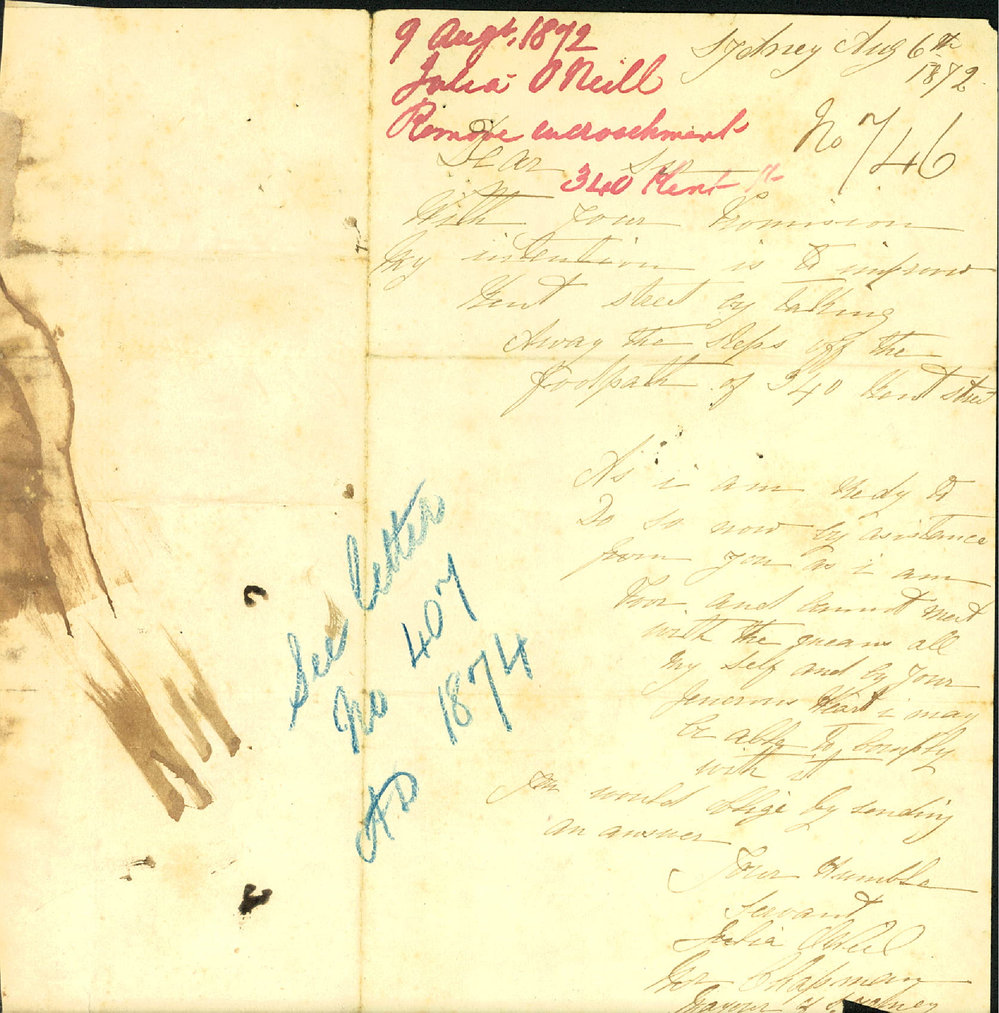 9 Augt, 1872
Julia O'Neill
Remove encroachment
340 Kent St
Sydney Aug 6th
1872
No 746
Dear Sir
With your Promision
My intention is to improve
Kent street by talking
Away the Steps off the
footpath of 340 Kent street
As i am Redy to
Do so now by asistance
from you as i am
Poor and Cannot meet
with the means all
My Self and by your
Generous Heart i may
be able to Comply
with it
You would oblige by sending
an answer
Your Humble
Servant
Julia ONeil
Chapman
Mayour of Sydney
See letter
No 407
1874